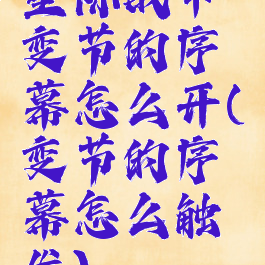 变节的序
幕怎么开(
变节的序
幕怎么触
发)